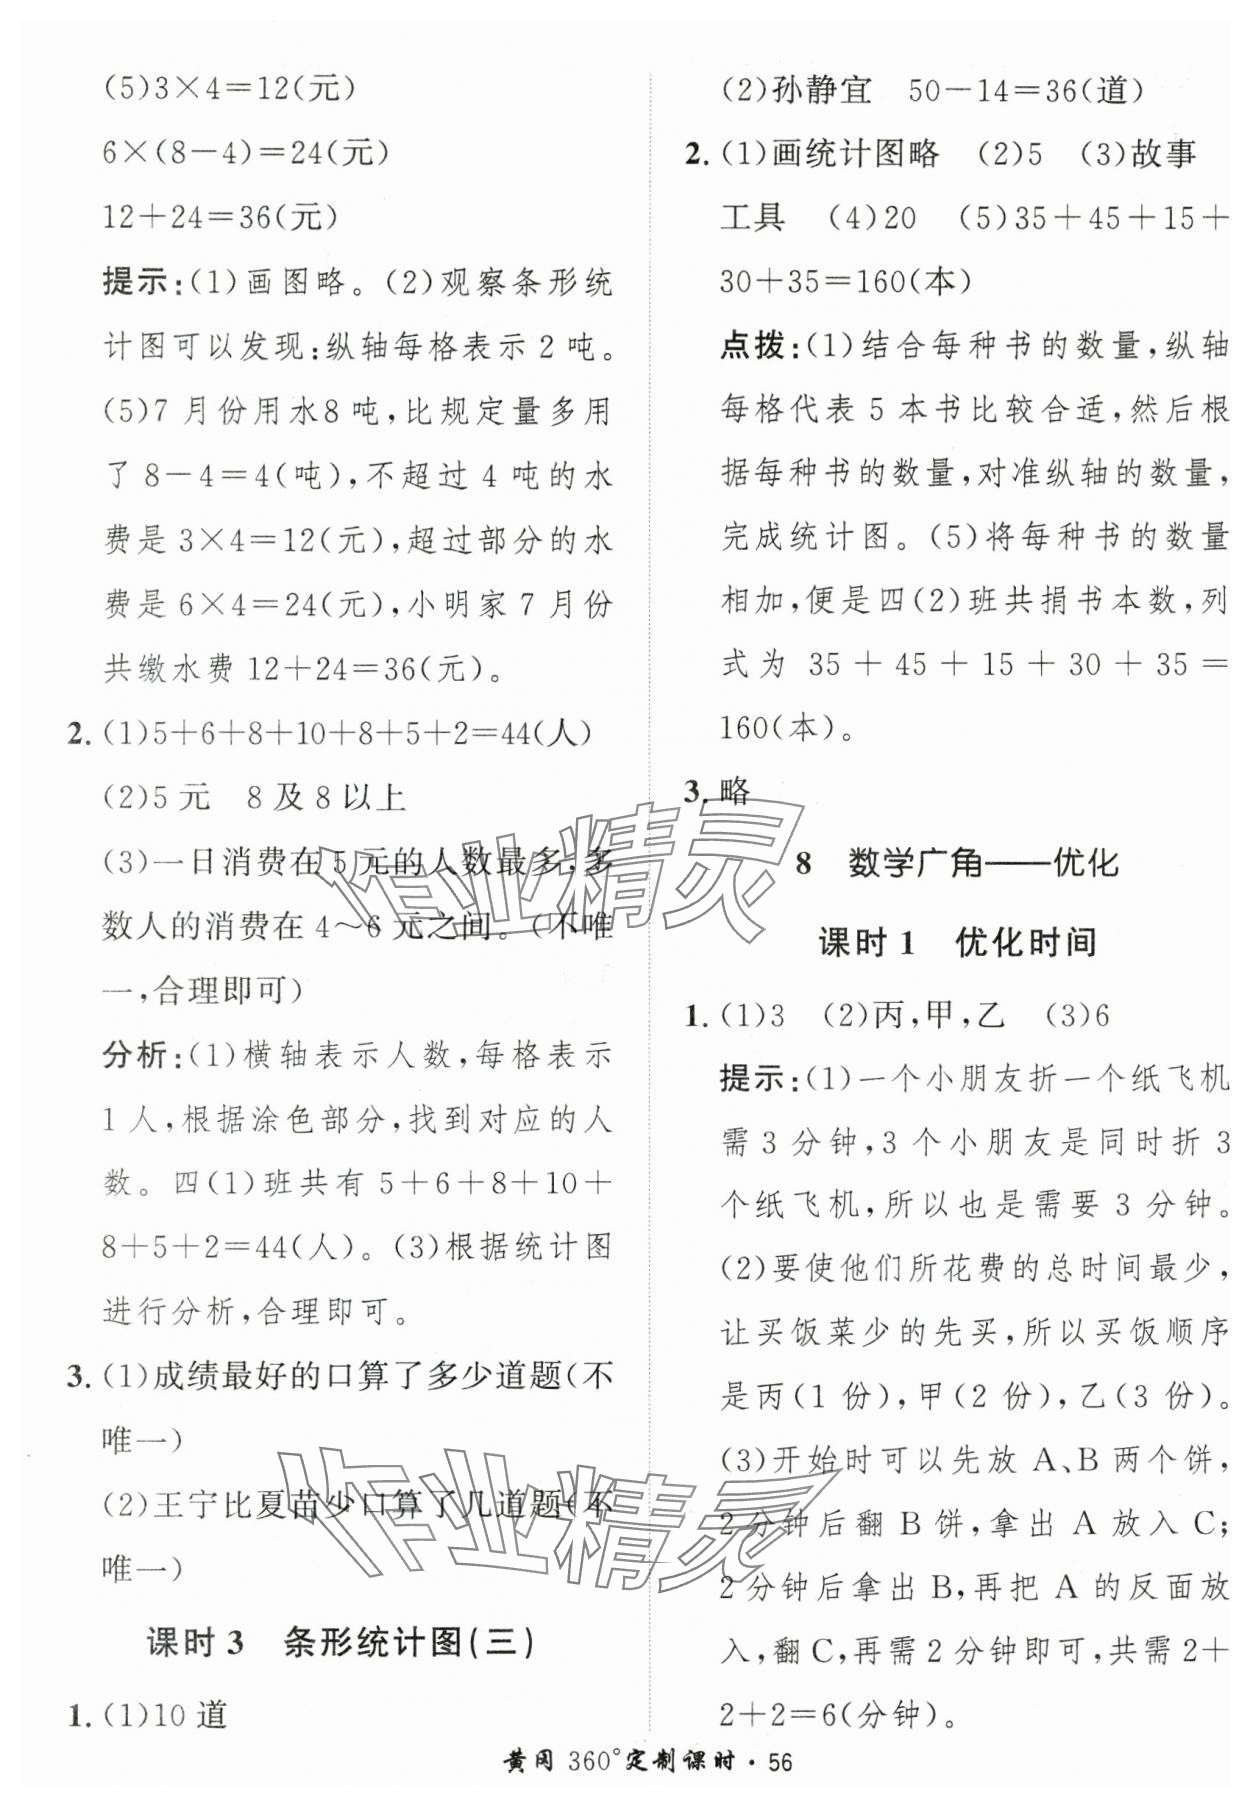 (5)3×4=12(元)
6×(8-4)=24(元)
12+24=36(元)
提示:(1)画图略。(2)观察条形统
计图可以发现:纵轴每格表示 2 吨。
(5)7 月份用水8 吨,比规定量多用
了 8-4=4(吨),不超过 4 吨的水
费是 3×4=12(元),超过部分的水
费是 6×4=24(元),小明家 7 月份
共缴水费 12+24=36(元)。
2. (1)5+6+8+10+8+5+2=44(人)
(2)5 元 8 及 8 以上
(3)一日消费在 5 元的人数最多,多
数人的消费在 4～6 元之间。(不唯
一,合理即可)
分析:(1)横轴表示人数,每格表示
1 人,根据涂色部分,找到对应的人
数。四(1)班共有 5+6+8+10+
8+5+2=44(人)。(3)根据统计图
进行分析,合理即可。
3. (1)成绩最好的口算了多少道题(不
唯一)
(2)王宁比夏苗少口算了几道题(不
唯一)
课时 3 条形统计图(三)
1. (1)10 道
(2)孙静宜 50-14=36(道)
2. (1)画统计图略 (2)5 (3)故事
工具 (4)20 (5)35+45+15+
30+35=160(本)
点拨:(1)结合每种书的数量,纵轴
每格代表 5 本书比较合适,然后根
据每种书的数量,对准纵轴的数量,
完成统计图。(5)将每种书的数量
相加,便是四(2)班共捐书本数,列
式为 35+45+15+30+35=
160(本)。
3. 略
8 数学广角——优化
课时 1 优化时间
1. (1)3 (2)丙,甲,乙 (3)6
提示:(1)一个小朋友折一个纸飞机
需 3 分钟,3 个小朋友是同时折 3
个纸飞机,所以也是需要 3 分钟。
(2)要使他们所花费的总时间最少,
让买饭菜少的先买,所以买饭顺序
是丙(1 份),甲(2 份),乙(3 份)。
(3)开始时可以先放 A、B 两个饼,
2 分钟后翻 B 饼,拿出 A 放入 C;
2 分钟后拿出 B,再把 A 的反面放
入,翻 C,再需 2 分钟即可,共需 2+
2+2=6(分钟)。
作业精灵
作业精灵
黄冈 360°定制课时·56